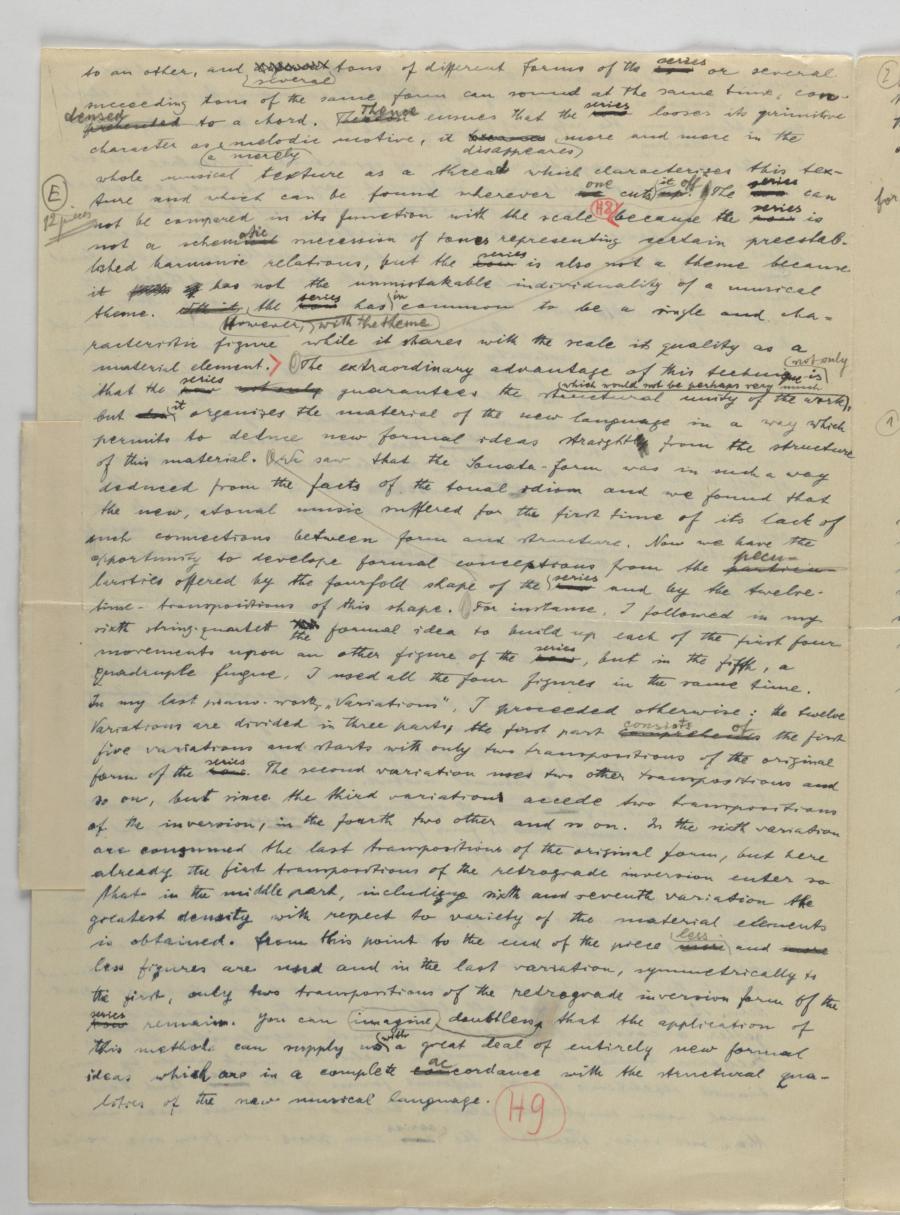 to an other, and several tons of different forms of the series or several
succeeding tons of the same form can sound at the same time, con-
densed to a chord. Thence ensues that the series looses its primitive
character as a merely melodic motive, it disappears more and more in the
whole musical texture as a thread which characterizes this tex-
E
12 pieces
ture and which can be found wherever one cuts it off. The series can
not be compared in its function with the scale H8 because the series is
not a schematic succession of tones representing certain preestab-
lished harmonic relations, but the series is also not a theme because
it has not the unmistakable individuality of a musical
theme. However, the series has in common with the theme to be a single and cha-
racteristic figure while it shares with the scale its quality as a
material element. The extraordinary advantage of this technique is not only
that the series guarantees the structural unity of the work, which would not be perhaps very much
but it organizes the material of the new language in a way which
permits to deduce new formal ideas straight from the structure
of this material. We saw that the Sonata-form was in such a way
deduced from the facts of the tonal idiom and we found that
the new, atonal music suffered for the first time of its lack of
such connections between form and structure. Now we have the
opportunity to develope formal conceptions from the pecu-
liarities offered by the fourfold shape of the series and by the twelve-
time-transpositions of this shape. For instance, I followed in my
sixth string-quartett the formal idea to build up each of the first four
movements upon an other figure of the series, but in the fifth, a
quadruple fugue, I used all the four figures in the same time.
In my last piano-work, „Variations", I proceeded otherwise: the twelve
Variations are divided in three parts, the first part consists of the first
five variations and starts with only two transpositions of the original
form of the series. The second variation uses two other transpositions and
so on, but since the third variation accede two transpositions
of the inversion, in the fourth two other and so on. In the sixth variation
are consumed the last transpositions of the original form, but here
already the first transpositions of the retrograde inversion enter so
that in the middle part, including sixth and seventh variation the
greatest density with repect to variety of the material elements
is obtained. From this point to the end of the piece less and
less figures are used and in the last variation, symmetrically to
the first, only two transpositions of the retrograde inversion form of the
series remain. You can imagine doubtless, that the application of
this method can supply us with a great deal of entirely new formal
ideas which are in a complete accordance with the structural qua-
lities of the new musical language. H9
for